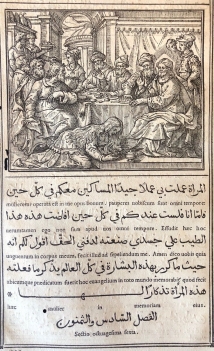 المرأة عملت بي عملا جيدا المساكين معكم في كل حين
mulier. operata est in me opus bonum. pauperes vobiscum sunt omni tempore
فاما انا فلست عندكم في كل حين افاضت هذه هذا
non sum apud vos omni tempore. Effudit haec hoc
الطيب على جسدي صنعته لدفني الحق اقول لكم انه
unguentum in corpus meum. fecit illud ad sepeliendum me. Amen dico vobis quia
حيث ما كرز بهذه البشارة في كل العالم يذكر ما فعلته
ubicumque praedicatum fuerit hoc evangelium in toto mundo memorabitur quod fecit
هذه المرأة تذكارا لها
haec mulier in memoriam eius.
الفصل السادس والثمنون
Sectio octuagesima sexta.